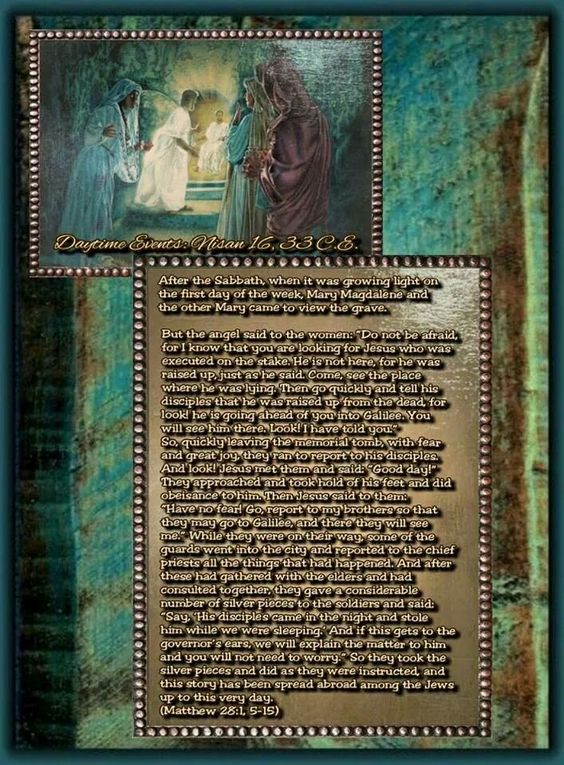 Daytime Events: Nisan 16, 33 C.E.
After the Sabbath, when it was growing light on
the first day of the week, Mary Magdalene and
the other Mary came to view the grave.
But the angel said to the women: "Do not be afraid,
for I know that you are looking for Jesus who was
executed on the stake. He is not here, for he was
raised up, just as he said. Come, see the place
where he was lying. Then go quickly and tell his
disciples that he was raised up from the dead, for
look! he is going ahead of you into Galilee. You
will see him there. Look! I have told you."
So, quickly leaving the memorial tomb, with fear
and great joy, they ran to report to his disciples.
And look! Jesus met them and said: "Good day!"
They approached and took hold of his feet and did
obeisance to him. Then Jesus said to them:
"Have no fear! Go, report to my brothers so that
they may go to Galilee, and there they will see
me." While they were on their way, some of the
guards went into the city and reported to the chief
priests all the things that had happened. And after
these had gathered with the elders and had
consulted together, they gave a considerable
number of silver pieces to the soldiers and said:
"Say, 'His disciples came in the night and stole
him while we were sleeping.' And if this gets to the
governor's ears, we will explain the matter to him
and you will not need to worry." So they took the
silver pieces and did as they were instructed, and
this story has been spread abroad among the Jews
up to this very day.
(Matthew 28:1, 5-15)